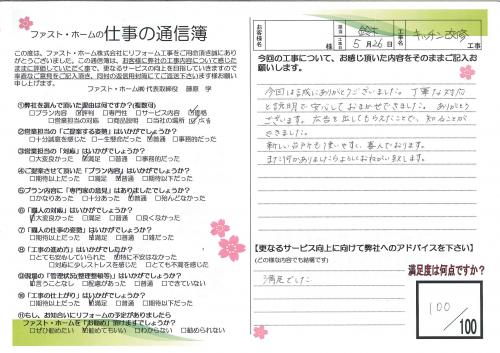 ファスト・ホームの仕事の通信簿
この度は、ファスト・ホーム株式会社にリフォーム工事をご用命頂き誠にあり
がとうございました。この通信簿は、お客様に弊社の工事内容について感じた
ままに評価していただく事で、更なるサービスの向上を目指していきますので
率直なご意見をご記入頂き、同封の返信用封筒にてご返送下さいます様お願
い申し上げます。
ファスト・ホーム㈱ 代表取締役 藤原 学
①弊社を選んで頂いた理由は何ですか?(複数可)
□プラン内容 □評判 □専門性 □サービス内容 □価格
□営業担当の対応 □商品説明 □当社の場所 ☑広告
②営業担当の「ご提案する姿勢」はいかがでしょうか?
□十分誠意を感じた □一生懸命だった ☑普通 □事務的だった
③営業担当の「対応」はいかがでしょうか?
□大変良かった ☑満足 □普通 □事務的だった
④ご提案させて頂いた「プラン内容」はいかがでしょうか?
□期待以上だった ☑満足 □普通 □期待以下だった
⑤プラン内容に「専門家の意見」はありましたでしょうか?
□かなりあった □十分あった ☑普通 □殆んどなかった
⑥「職人の対応」はいかがでしょうか?
☑大変良かった □満足 □普通 □良くなかった
⑦「職人の仕事の姿勢」はいかがでしょうか?
□期待以上だった ☑満足 □普通 □雑だった
⑧「工事の進め方」はいかがでしょうか?
□とても安心していられた ☑特に不安はなかった
□対応に少しストレスを感じた □とても不満を感じた
⑨現場の「管理状況(整理整頓等)」はいかがでしょうか?
□言うことなし □配慮があった ☑普通 □できていない
⑩「工事の仕上がり」はいかがでしょうか?
□期待以上だった ☑満足 □普通 □期待以下だった
⑪もし、お知合いにリフォームの予定がありましたら
ファスト・ホームを「お勧め」頂けますでしょうか?
□ぜひ勧めたい ☑勧めてもいい □わからない □勧められない
お客様名 様 担当 鈴木 工事名 キッチン改修
5月26日
今回の工事について、お感じ頂いた内容をそのままご記入お
願いします。
今回は誠にありがとうございました。丁寧な対応
と説明で安心しておまかせできました。ありがとう
ございます。広告を出してもらえたことで、知ることが
できました。
新しい台所も使いやすく、喜んでおります。
また何かありましたらよろしくおねがい致します。
【更なるサービス向上に向けて弊社へのアドバイスを下さい】
(どの様な内容でも結構です)
満足でした
満足度は何点ですか?
100/100